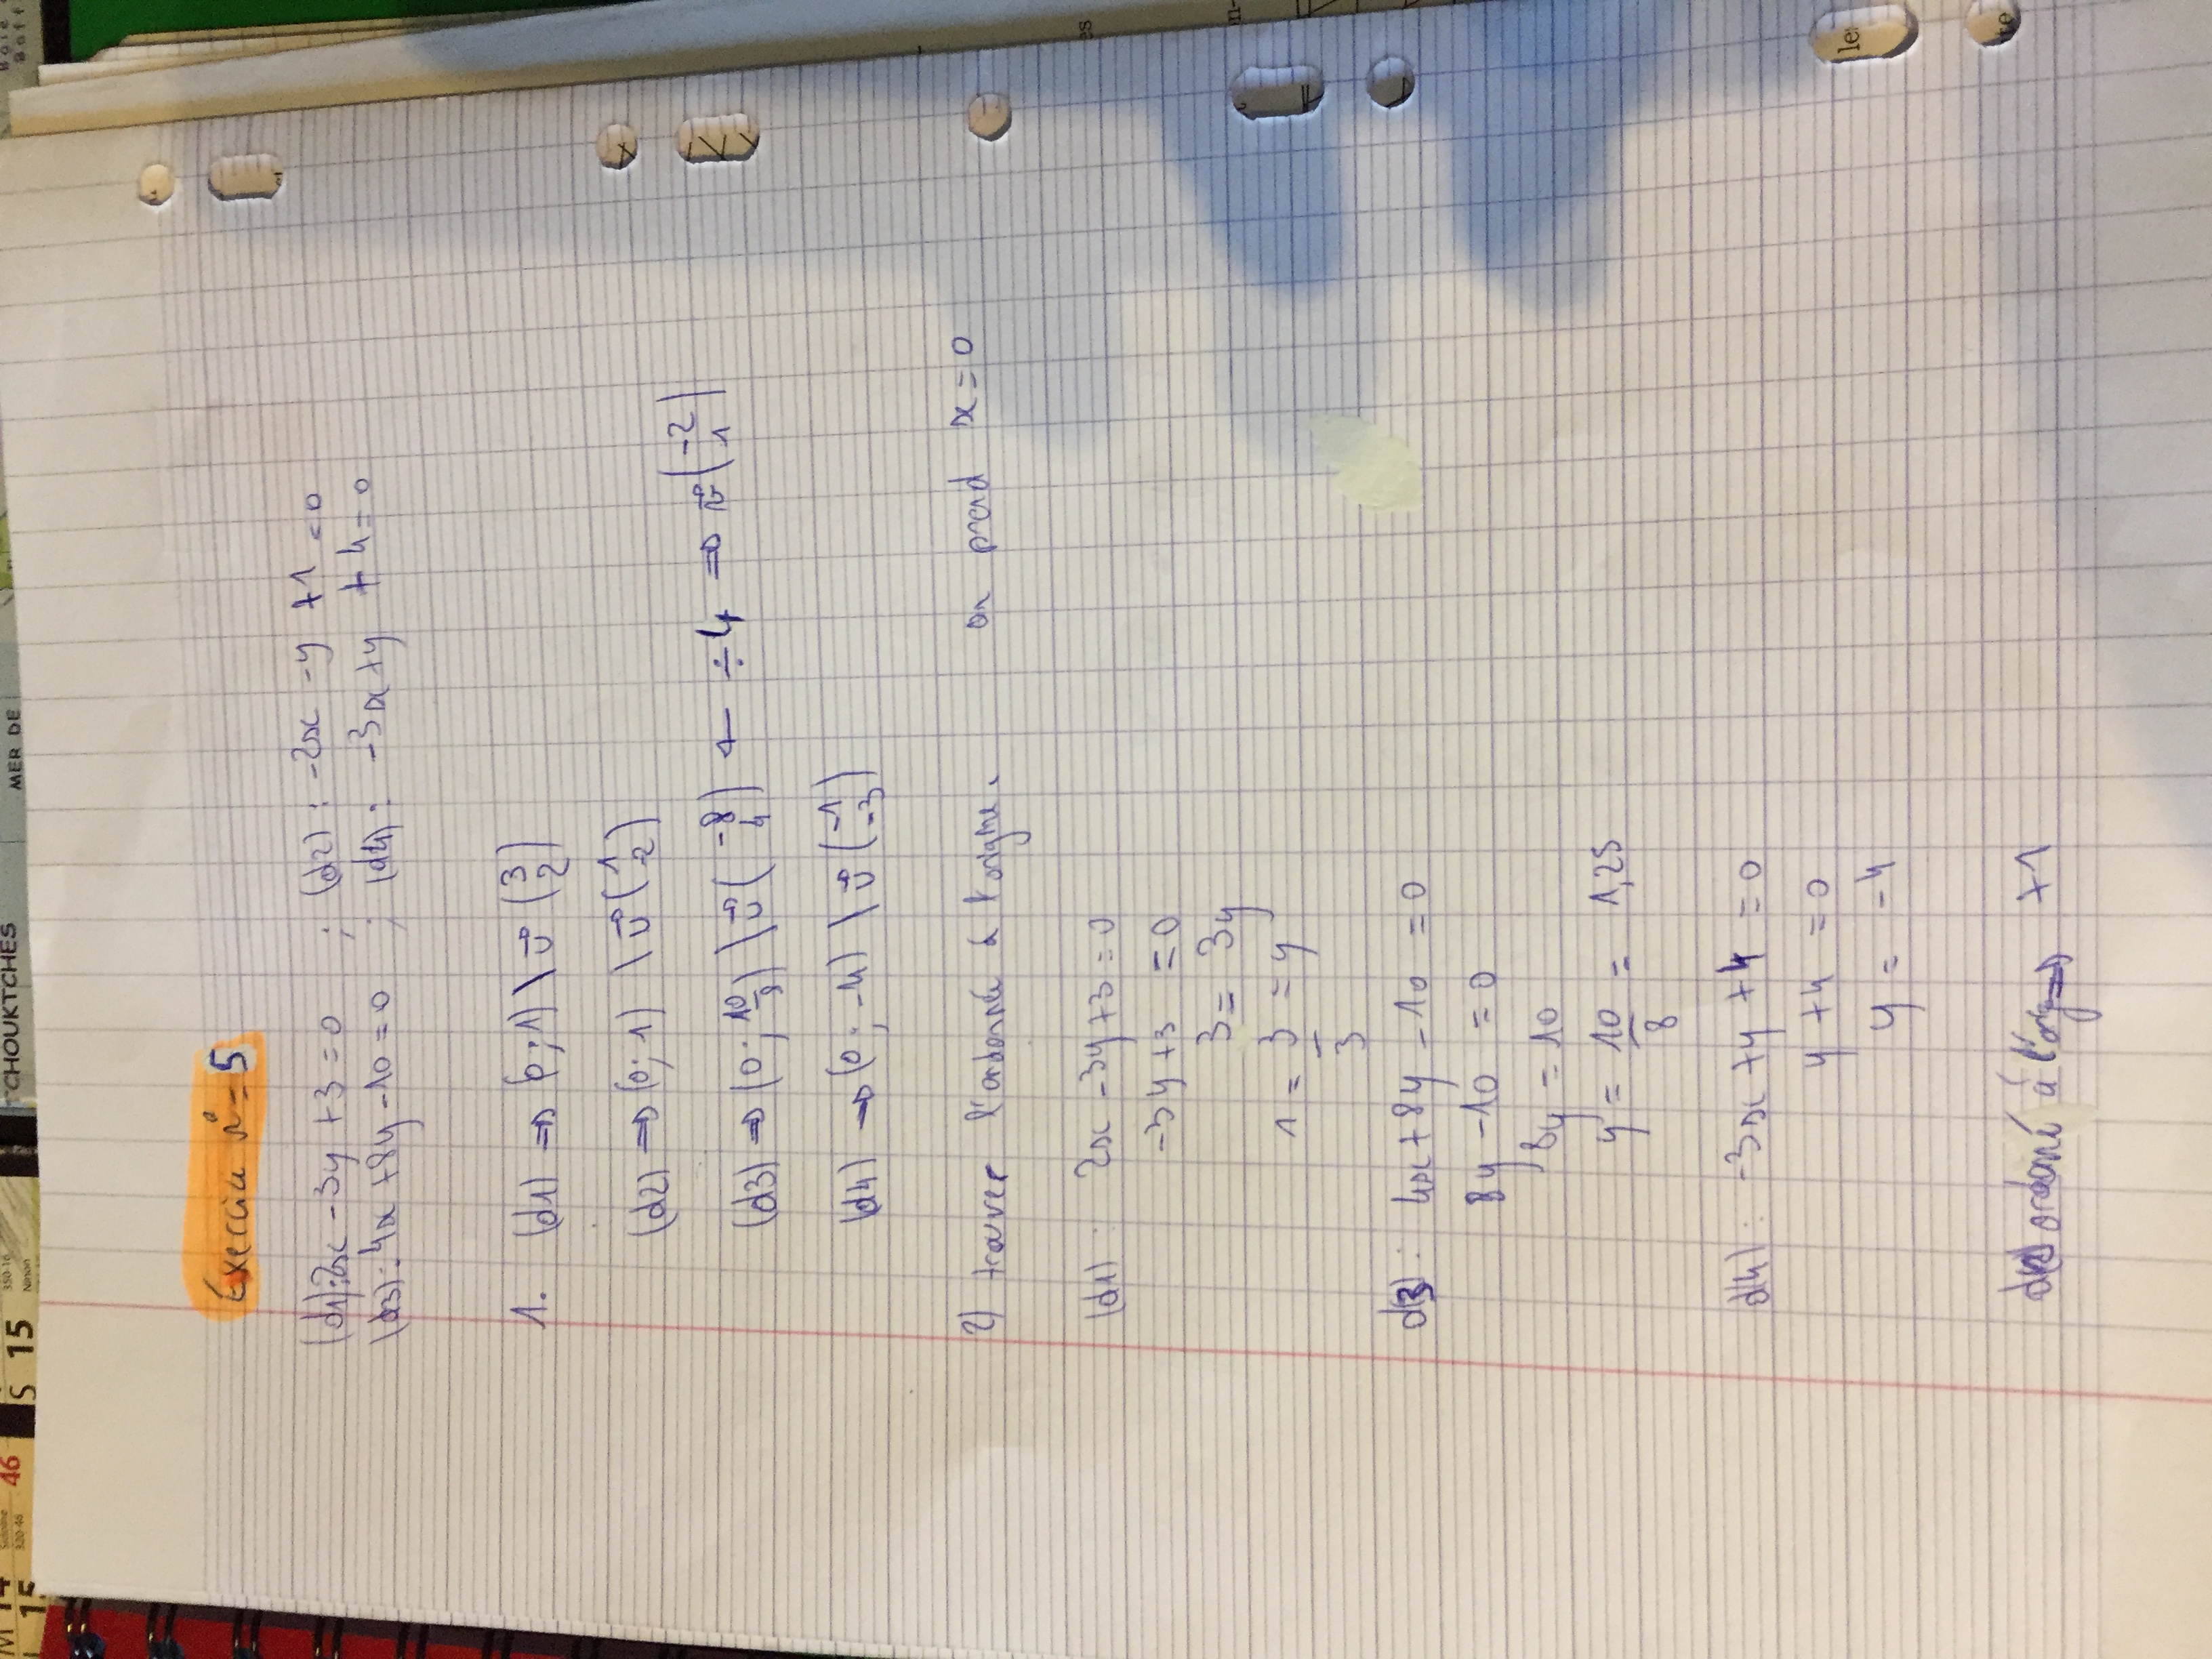 M 14
Sidoine
320-46
46
15
S 15
350-16
Ninon
TCHOUKTCHES
MER DE
Baie
Baff
Exercice n°= 5
(d1): 2x - 3y + 3 = 0 ; (d2) : -2x - y + 1 = 0
(d3): 4x + 8y - 10 = 0 ; (d4) : -3x + y + 4 = 0
1. (d1) ⇒ (0 ; 1) \ u⃗ (3 2)
(d2) ⇒ (0 ; 1) \ u⃗ (1 -2)
(d3) ⇒ (0 ; 10/8) \ u⃗ (-8 4) ← ÷4 ⇒ v⃗ (-2 1)
(d4) ⇒ (0 ; -4) \ u⃗ (-1 -3)
2) trouver l'ordonnée à l'origine. on prend x = 0
(d1) : 2x - 3y + 3 = 0
-3y + 3 = 0
3 = 3y
1 = 3/3 = y
d(3) : 4x + 8y - 10 = 0
8y - 10 = 0
8y = 10
y = 10/8 = 1,25
d(4) : -3x + y + 4 = 0
y + 4 = 0
y = -4
d(2) ordoné à l'orig ⇒ +1
es
n-
les
te